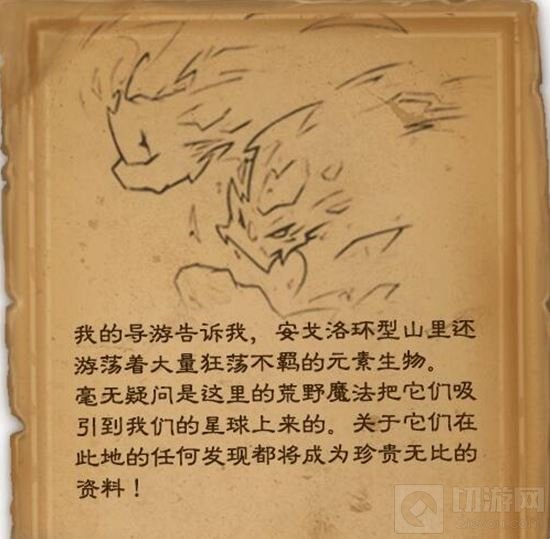 我的导游告诉我，安戈洛环型山里还
游荡着大量狂荡不羁的元素生物。
毫无疑问是这里的荒野魔法把它们吸
引到我们的星球上来的。关于它们在
此地的任何发现都将成为珍贵无比的
资料！
切游网